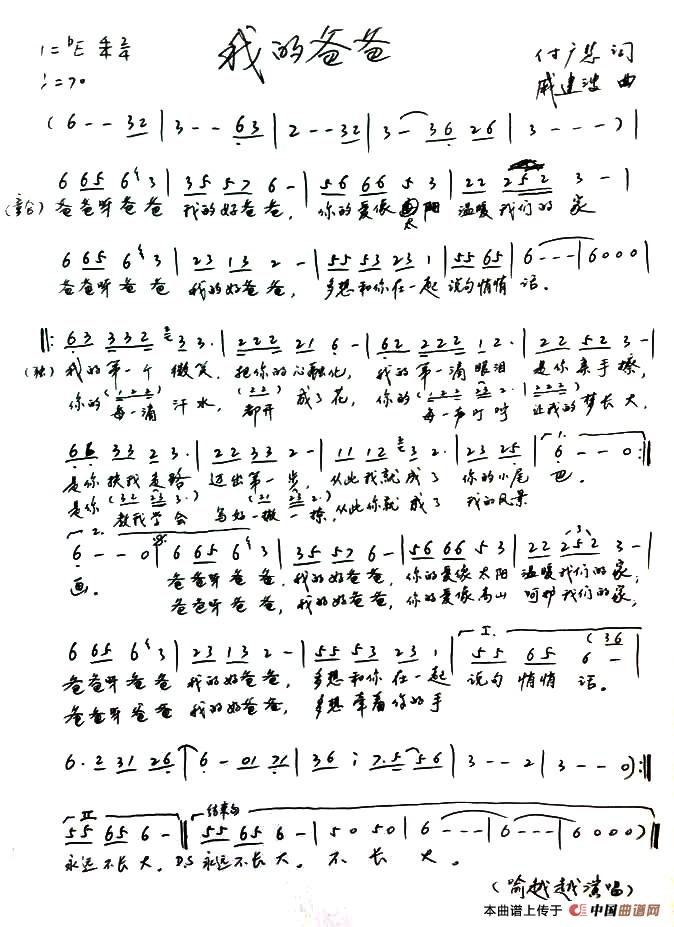 我的爸爸
1=♭E 4/4 2/4
♩=70
付广慧 词
戚建波 曲
(6 - - 32 | 3 - - 63 | 2 - - 32 | 3 - 36 26 | 3 - - - )|
6 65 6 3 | 35 57 6 - | 56 66 5 3 | 22 252 3 - |
(童合) 爸爸呀爸爸 我的好爸爸, 你的爱像太阳 温暖我们的家
6 65 6 3 | 23 13 2 - | 55 53 23 1 | 55 65 | 6 - - - | 6 0 0 0 |
爸爸呀爸爸 我的好爸爸, 多想和你在一起 说句悄悄话。
‖: 63 332 3 3· | 222 21 6 - | 62 222 12· | 22 52 3 - |
(独) 我的第一个微笑, 把你的心融化, 我的第一滴眼泪 是你亲手擦,
你的 (122) 每一滴汗水, (22) 都开成了花, 你的 (122 23 2· | 222) 每一声叮咛 让我的梦长大,
66 33 23· | 22 33 2 - | 11 12 3 2· | 23 25 | 1. 6 - - 0 :‖
是你扶我走路 迈出第一步, 从此我就成了 你的小尾巴。
是你 (32 23 3·) 教我学会 (21 23 2·) 写好一撇一捺, 从此你就成了 我的风景
2. 6 - - 0 | 6 65 6 3 | 35 57 6 - | 56 66 5 3 | 22 252 3 - |
画。 爸爸呀爸爸, 我的好爸爸, 你的爱像太阳 温暖我们的家,
爸爸呀爸爸, 我的好爸爸, 你的爱像高山 呵护我们的家,
6 65 6 3 | 23 13 2 - | 55 53 23 1 | I. 55 65 6 - (36 |
爸爸呀爸爸 我的好爸爸, 多想和你在一起 说句悄悄话。
爸爸呀爸爸 我的好爸爸, 多想牵着你的手
6· 2 31 26 | 6 - 01 71 | 36 i 7·5 56 | 3 - - 2 | 3 - - 0) :‖
II. 55 65 6 - ‖ 结束句 55 65 6 - | 5 0 5 0 | 6 - - - | 6 - - - | 6 0 0 0 )‖
永远不长大。 D.S 永远不长大。 不长大。
(喻越越演唱)
本曲谱上传于 中国曲谱网